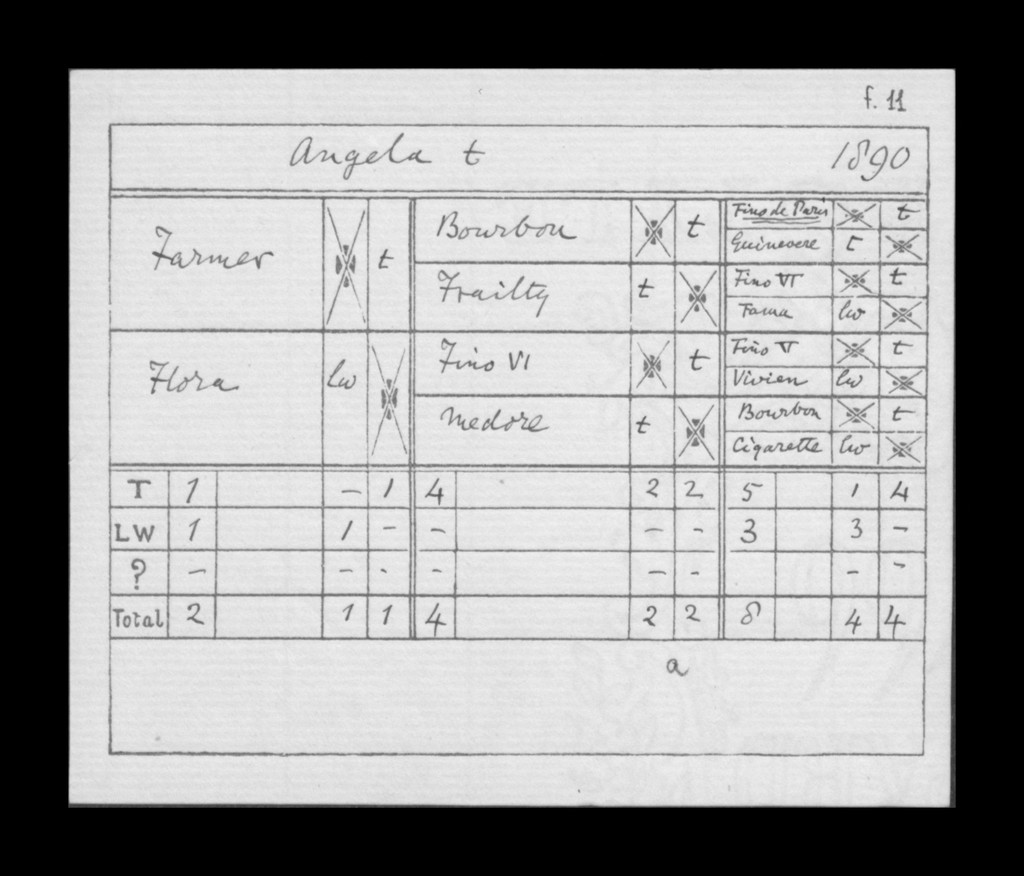 f. 11
Angela t 1890
Farmer t
Bourbon t
Fino de Paris t
Guinevere t
Frailty t
Fino VI t
Fama lw
Flora lw
Fino VI t
Fino V t
Vivien lw
Medore t
Bourbon t
Cigarette lw
T 1 – 1 4 2 2 5 1 4
LW 1 1 – – – – 3 3 –
? – – - – – - – –
Total 2 1 1 4 2 2 8 4 4
a